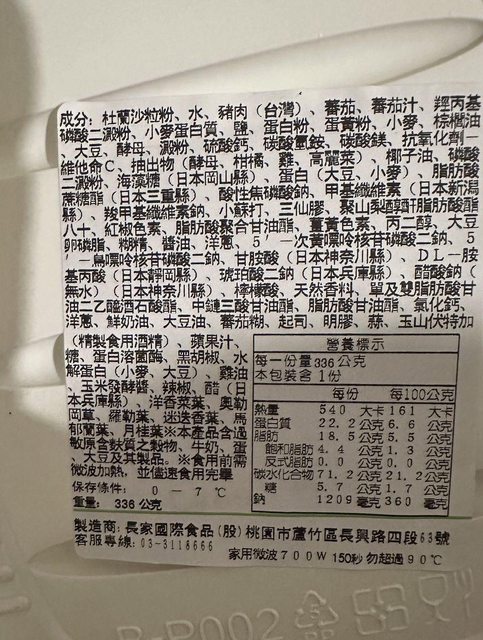 成分: 杜蘭沙粒粉、水、豬肉（台灣）、蕃茄、蕃茄汁、羥丙基
磷酸二澱粉、小麥蛋白質、鹽、蛋白粉、蛋黃粉、小麥、棕櫚油
、大豆、酵母、澱粉、硫酸鈣、碳酸氫銨、碳酸鎂、抗氧化劑－
維他命C、抽出物（酵母、柑橘、雞、高麗菜）、椰子油、磷酸
二澱粉、海藻糖（日本岡山縣）、蛋白（大豆、小麥）、脂肪酸
蔗糖酯（日本三重縣）、酸性焦磷酸鈉、甲基纖維素（日本新潟
縣）、羧甲基纖維素鈉、小蘇打、三仙膠、聚山梨醇酐脂肪酸酯
八十、紅椒色素、脂肪酸聚合甘油酯、薑黃色素、丙二醇、大豆
卵磷脂、糊精、醬油、洋蔥、5’－次黃嘌呤核苷磷酸二鈉、5
’－鳥嘌呤核苷磷酸二鈉、甘胺酸（日本神奈川縣）、DL－胺
基丙酸（日本靜岡縣）、琥珀酸二鈉（日本兵庫縣）、醋酸鈉（
無水）（日本神奈川縣）、檸檬酸、天然香料、單及雙脂肪酸甘
油二乙醯酒石酸酯、中鏈三酸甘油酯、脂肪酸甘油酯、氯化鈣、
洋蔥、鮮奶油、大豆油、蕃茄糊、起司、明膠、蒜、玉山伏特加
（精製食用酒精）、蘋果汁、
糖、蛋白溶菌酶、黑胡椒、水
解蛋白（小麥、大豆）、雞油
、玉米發酵醬、辣椒、醋（日
本兵庫縣）、洋香菜葉、奧勒
岡草、羅勒葉、迷迭香葉、馬
郁蘭葉、月桂葉※本產品含過
敏原含麩質之穀物、牛奶、蛋
、大豆及其製品。※食用前需
微波加熱，並儘速食用完畢
保存條件： 0－7℃
重量： 336 公克
營養標示
每一份量336公克
本包裝含 1份
每份 每100公克
熱量 540 大卡 161 大卡
蛋白質 22.2 公克 6.6 公克
脂肪 18.5 公克 5.5 公克
飽和脂肪 4.4 公克 1.3 公克
反式脂肪 0.0 公克 0.0 公克
碳水化合物 71.2 公克 21.2 公克
糖 5.7 公克 1.7 公克
鈉 1209 毫克 360 毫克
製造商: 長家國際食品(股)桃園市蘆竹區長興路四段63號
客服專線: 03-3118666 家用微波700W 150秒 勿超過90℃
R-P002